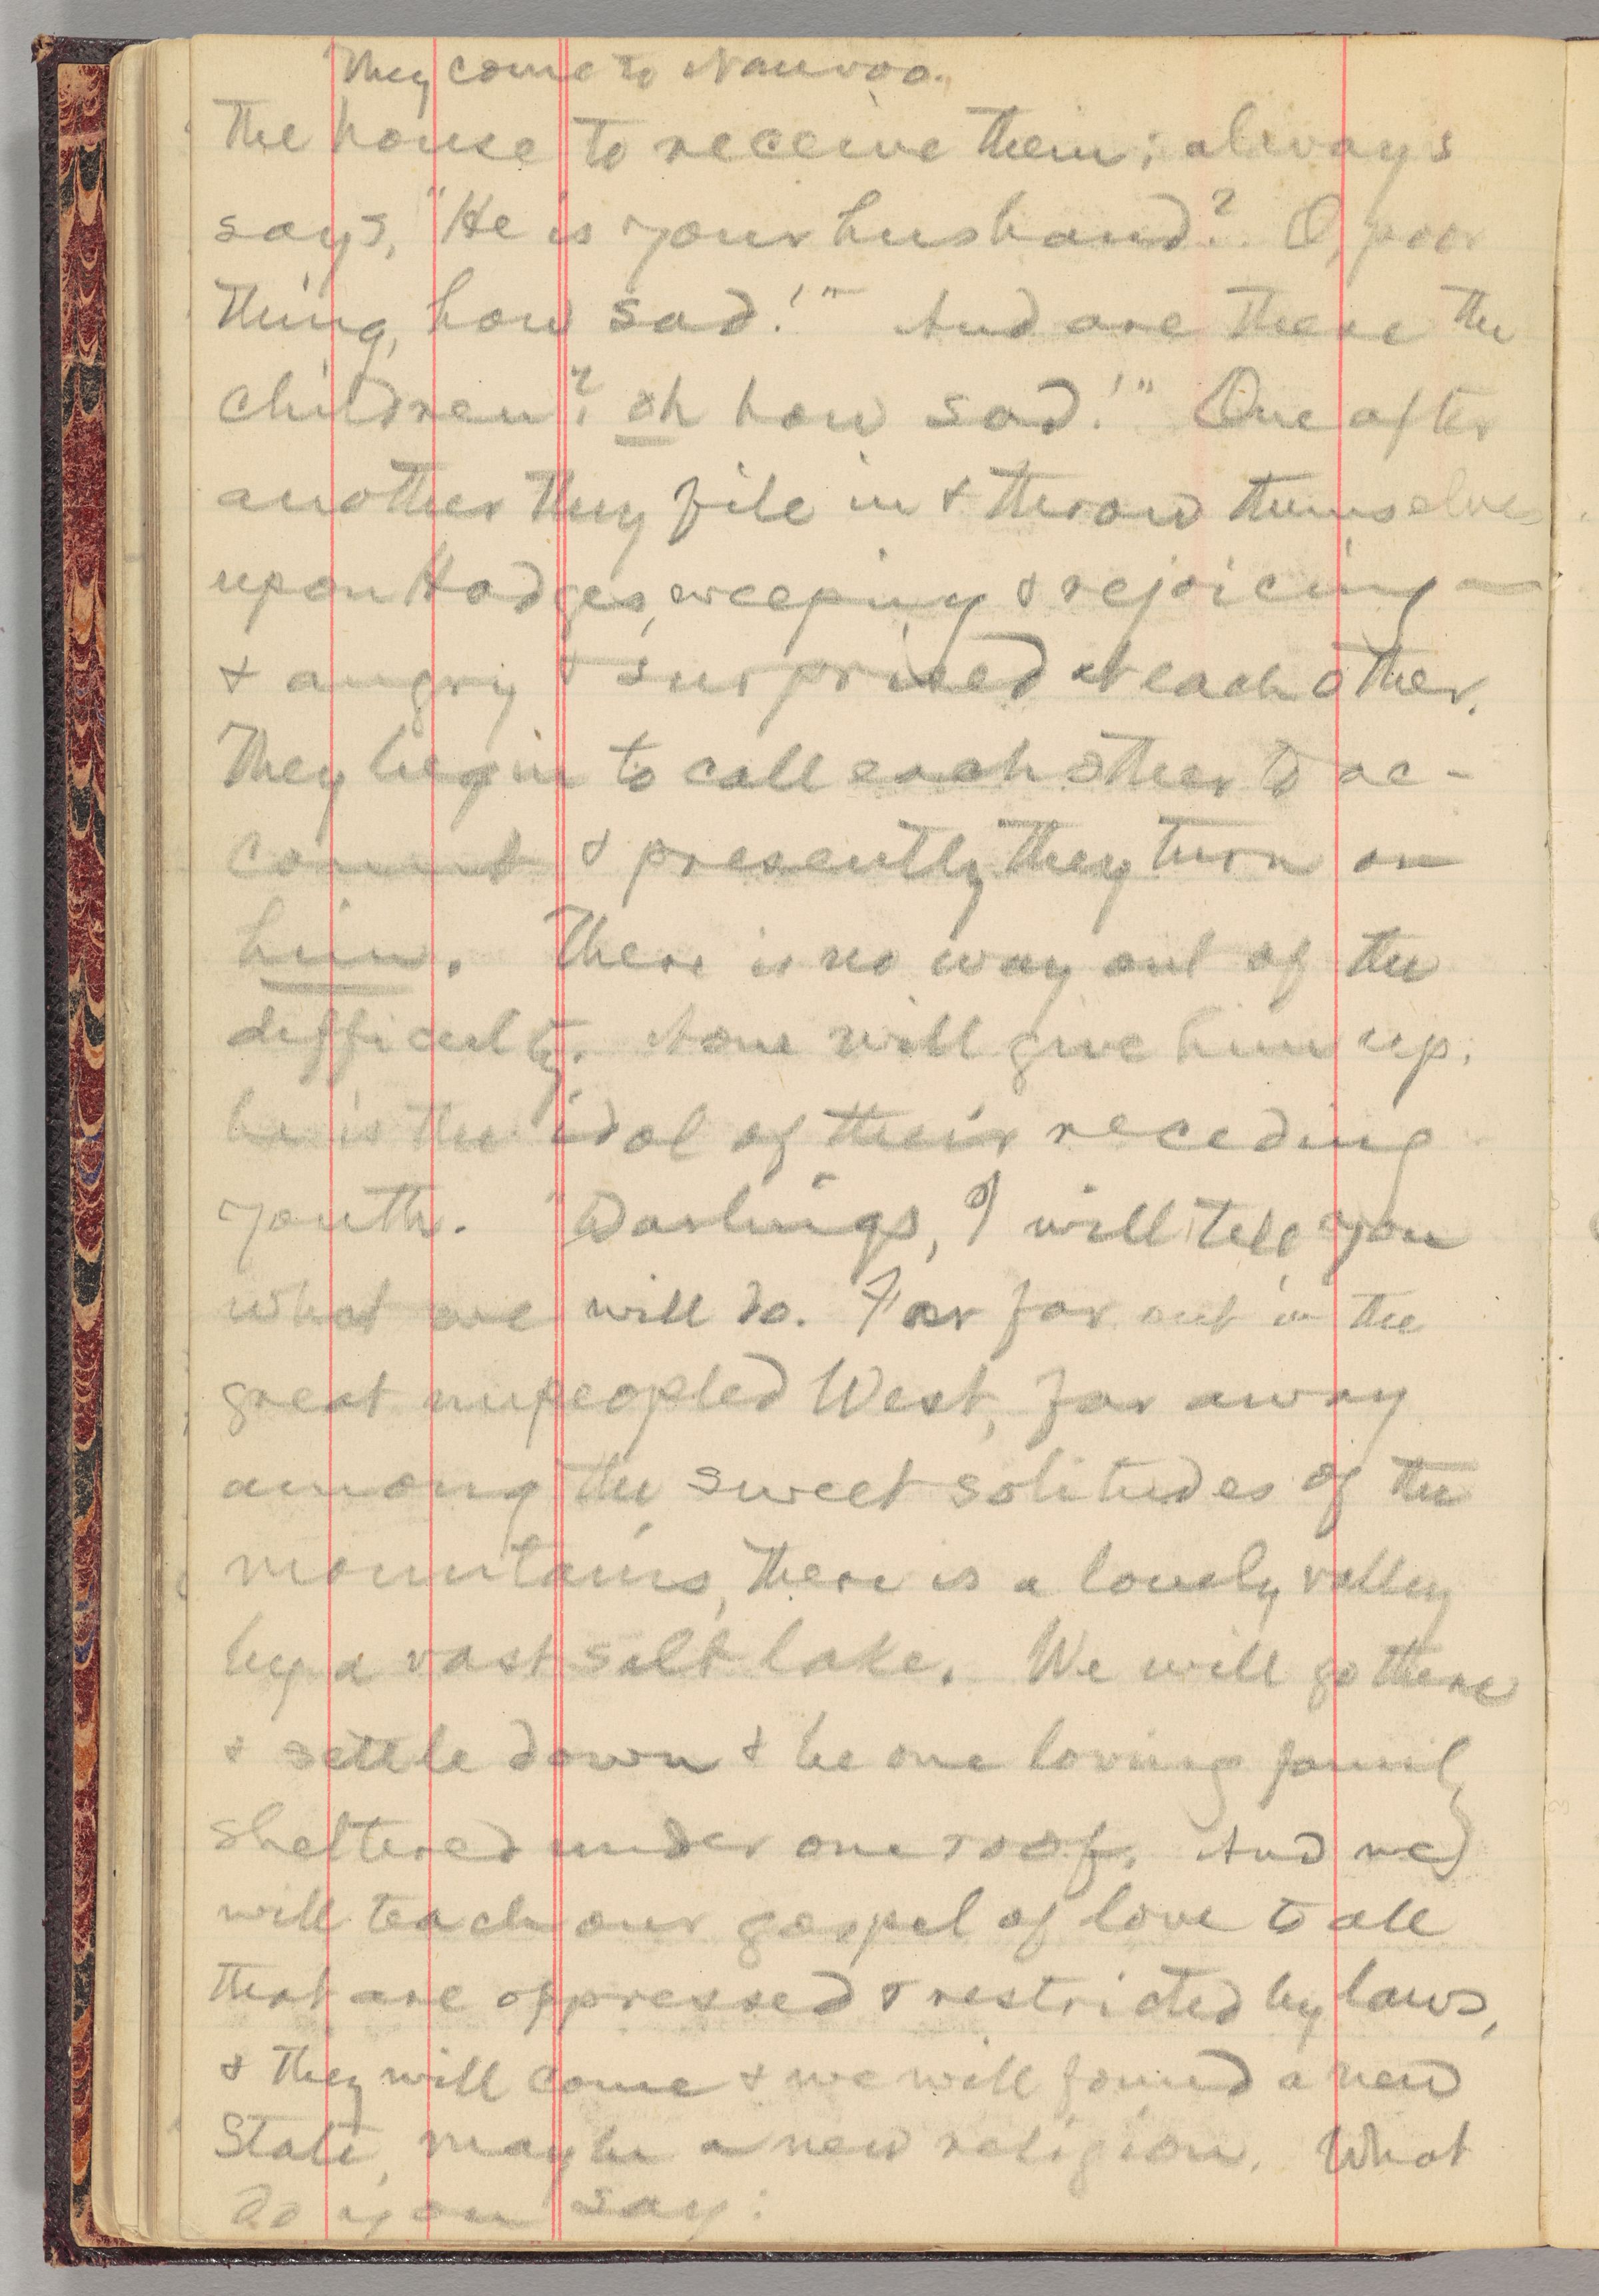 They come to Nauvoo.
the house to receive them; always
says, "He is your husband? O, poor
thing, how sad!" And are these the
children? oh how sad!" One after
another they file in & throw themselves
upon Hodges, weeping & rejoicing —
& angry & surprised at each other.
They begin to call each other to ac-
count & presently they turn on
him. There is no way out of the
difficulty. None will give him up;
he is the idol of their receding
youth. "Darlings, I will tell you
what we will do. Far far out in the
great unpeopled West, far away
among the sweet solitudes of the
mountains, there is a lovely valley
by a vast salt lake. We will go there
& settle down & be one loving family
sheltered under one roof. And we
will teach our gospel of love to all
that are oppressed & restricted by laws,
& they will come & we will found a new
State, maybe a new religion. What
do you say: